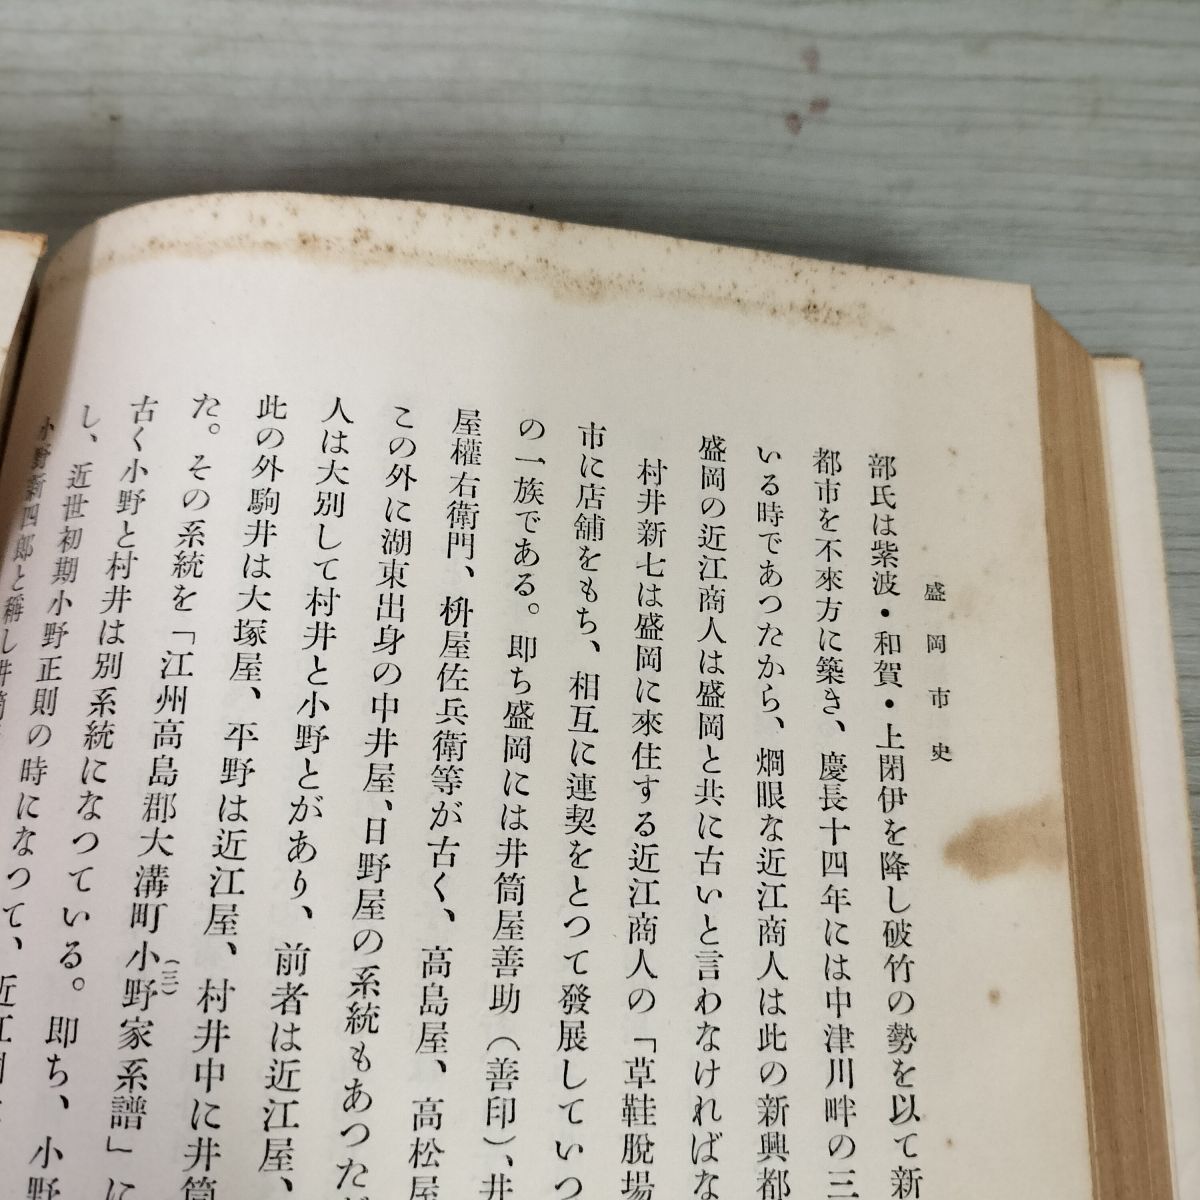 盛岡市史
部氏は紫波・和賀・上閉伊を降し破竹の勢を以て新
都市を不來方に築き、慶長十四年には中津川畔の三
いる時であつたから、烱眼な近江商人は此の新興都
盛岡の近江商人は盛岡と共に古いと言わなければな
村井新七は盛岡に來住する近江商人の「草鞋脫場
市に店舗をもち、相互に連契をとつて發展していつ
の一族である。即ち盛岡には井筒屋善助（善印）、井
屋權右衛門、枡屋佐兵衛等が古く、高島屋、高松屋
この外に湖東出身の中井屋、日野屋の系統もあつただ
人は大別して村井と小野とがあり、前者は近江屋、
此の外駒井は大塚屋、平野は近江屋、村井中に井筒
た。その系統を「江州高島郡大溝町小野家系譜」に
(三)
古く小野と村井は別系統になつている。即ち、小野
し、近世初期小野正則の時になつて、近江国
小野新四郎と稱し井筒